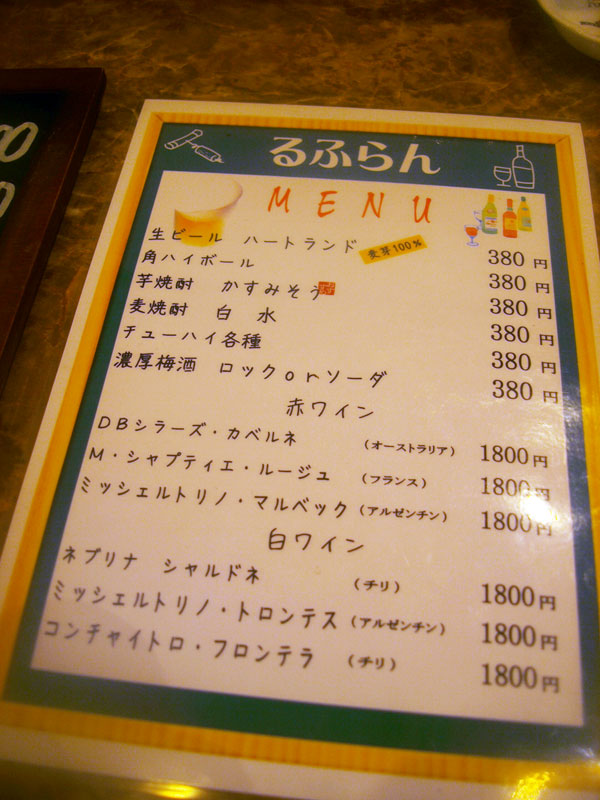 るふらん
MENU
生ビール ハートランド 麦芽100% 380円
角ハイボール 380円
芋焼酎 かすみそう 380円
麦焼酎 白水 380円
チューハイ各種 380円
濃厚梅酒 ロックorソーダ 380円
赤ワイン
DBシラーズ・カベルネ (オーストラリア) 1800円
M・シャプティエ・ルージュ (フランス) 1800円
ミッシェルトリノ・マルベック (アルゼンチン) 1800円
白ワイン
ネブリナ シャルドネ (チリ) 1800円
ミッシェルトリノ・トロンテス (アルゼンチン) 1800円
コンチャイトロ・フロンテラ (チリ) 1800円